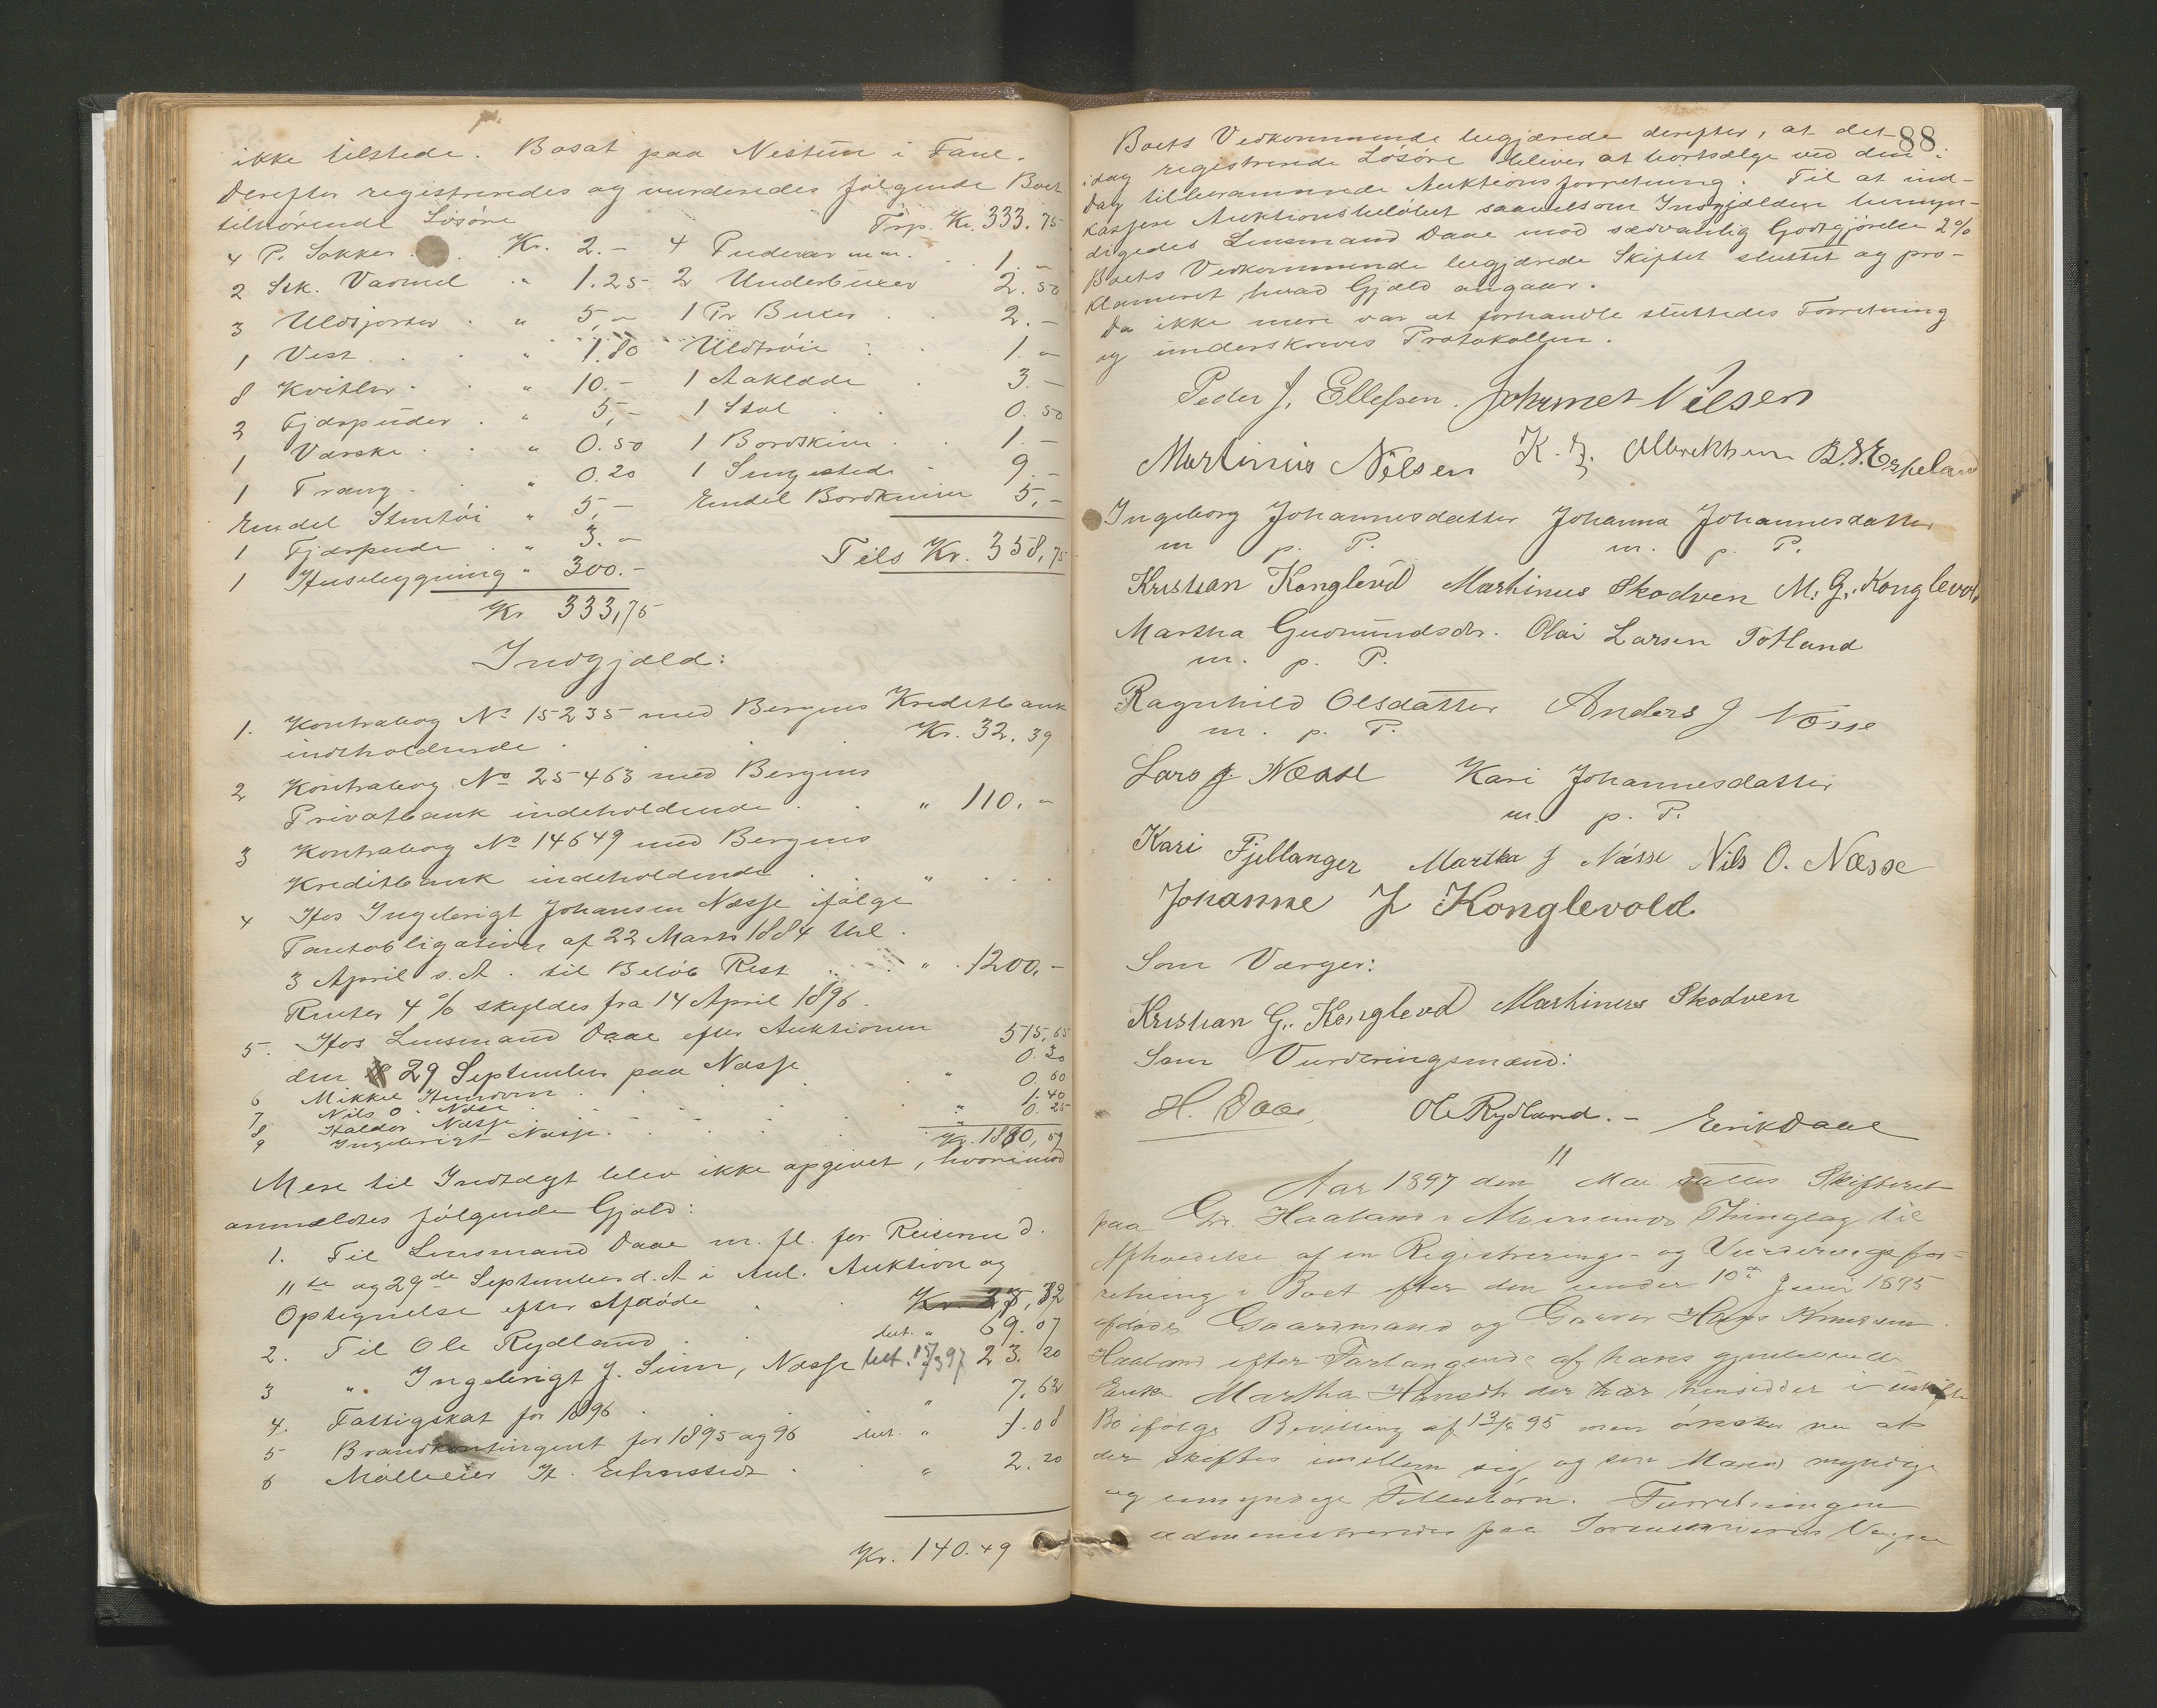 ikke tilstede. Bosat paa Nestun i Fane.
Derefter registreredes og vurderedes følgende Boet
tilhørende Løsøre
Trp. Kr. 333.75
4 P. Sokker . Kr. 2.- 4 Puder m m. . 1.-
2 Stk. Vadmel " 1.25 2 Underbuxer 2.50
3 Uldsjorter . " 5,- 1 Pr Buxer . . 2.-
1 Vest . . " 1.80 Uldtrøie . . 1.-
8 Kvitler . . " 10.- 1 Aaklæde . 3.-
2 Fjærpuder . " 5,- 1 Stol . . 0.50
1 Væske . . " 0.50 1 Bordskive . . 1.-
1 Traug . . " 0.20 1 Sengested . 9.-
Endel Stentøi " 5,- Endel Bordkniver 5,-
1 Fjærpude . " 3.- Tils Kr. 358,75
1 Husebygning " 300.-
Kr 333,75
Indgjæld:
1. Kontrabog No 15235 med Bergens Kreditbank
indeholdende . . . Kr. 32.39
2 Kontrabog No 25463 med Bergens
Privatbank indeholdende . . " 110.-
3 Kontrabog No 14649 med Bergens
Kreditbank indeholdende . . " . . .
4 Hos Ingebrigt Johansen Næsse ifølge
Pantobligation af 22 Marts 1884 thl.
3 April s. A. til Beløb Rest . . " . 1200.-
Renter 4 % skyldes fra 14 April 1896.
5. Hos Lensmand Daae efter Auktionen
den 29 September paa Næsse 515,65
6 Mikkel . . . " 0.30
7 Nils O. Næsse . . . 0.60
8 Haldor Næsse . . . " 1.40
9 Ingebrigt Næsse . . . " 0.25
Kr. 1880,59
Mere til Indtægt blev ikke opgivet, hvorimod
anmeldtes følgende Gjæld:
1. Til Lensmand Daae m. fl. for Reiserne d.
11te og 29de September d. A i Anl. Auktion og
Optegnelse efter Afdøde . . Kr. 37,32
2. Til Ole Rydland . . bet. " 69.07
3 " Ingebrigt J. Næsse bet. 15/3 97 23.20
4. Fattigskat for 1896 . . " 7.62
5 Brandkontingent for 1895 og 96 bet. " 1.08
6 Mølleeier H. . . " 2.20
Kr. 140.49
88
Boets Vedkommende begjærede derefter, at det
idag registrerede Løsøre bliver at bortsælge ved den i
Dag tilberammede Auktionsforretning. Til at ind-
kassere Auktionsbeløbet saavelsom Indgjælden bemyn-
digedes Lensmand Daae mod sædvanlig Godtgjørelse 2%
Boets Vedkommende begjærede Skiftet sluttet og pro-
klameret, hvad Gjæld angaar.
Da ikke mere var at forhandle sluttedes Forretning
og underskreves Protokollen.
Peder J. Ellefsen. Johannes Nilsen
Martinius Nilsen K. J. Albrektsen B. S. Espeland
Ingeborg Johannesdatter Johanna Johannesdatter
m p. P. m. p. P.
Kristian Konglevd Martinus Skodven M. G. Konglevol
Martha Gudmundsdr. Olai Larsen Totland
m. p. P.
Ragnhild Olsdatter Anders J Næsse
m. p. P.
Lars J. Næsse Kari Johannesdatter
m. p. P.
Kari Fjellanger Martha J Næsse Nils O. Næsse
Johanne J. Konglevold
Som Værger:
Kristian G. Konglevd Martinus Skodven
Som Vurderingsmænd:
H. Daae, Ole Rydland. - Erik Daae
Aar 1897 den 11 Mai sattes Skifteret
paa Gr. Haaland i Alversunds Thinglag til
Afholdelse af en Registrerings- og Vurderingsfor-
retning i Boet efter den under 10de Juni 1895
afdøde Gaardmand og Garver Hans Knudsen
Haaland efter Forlangende af hans gjenlevende
Enke Martha Hansdtr der har hensiddet i uskiftet
Bo ifølge Bevilling af 13/6 95 men ønsker nu at
der skiftes imellem sig og sin Mands myndige
og umyndige Fællesbørn. Forretningen
administreredes paa Sorenskriverens Vegne